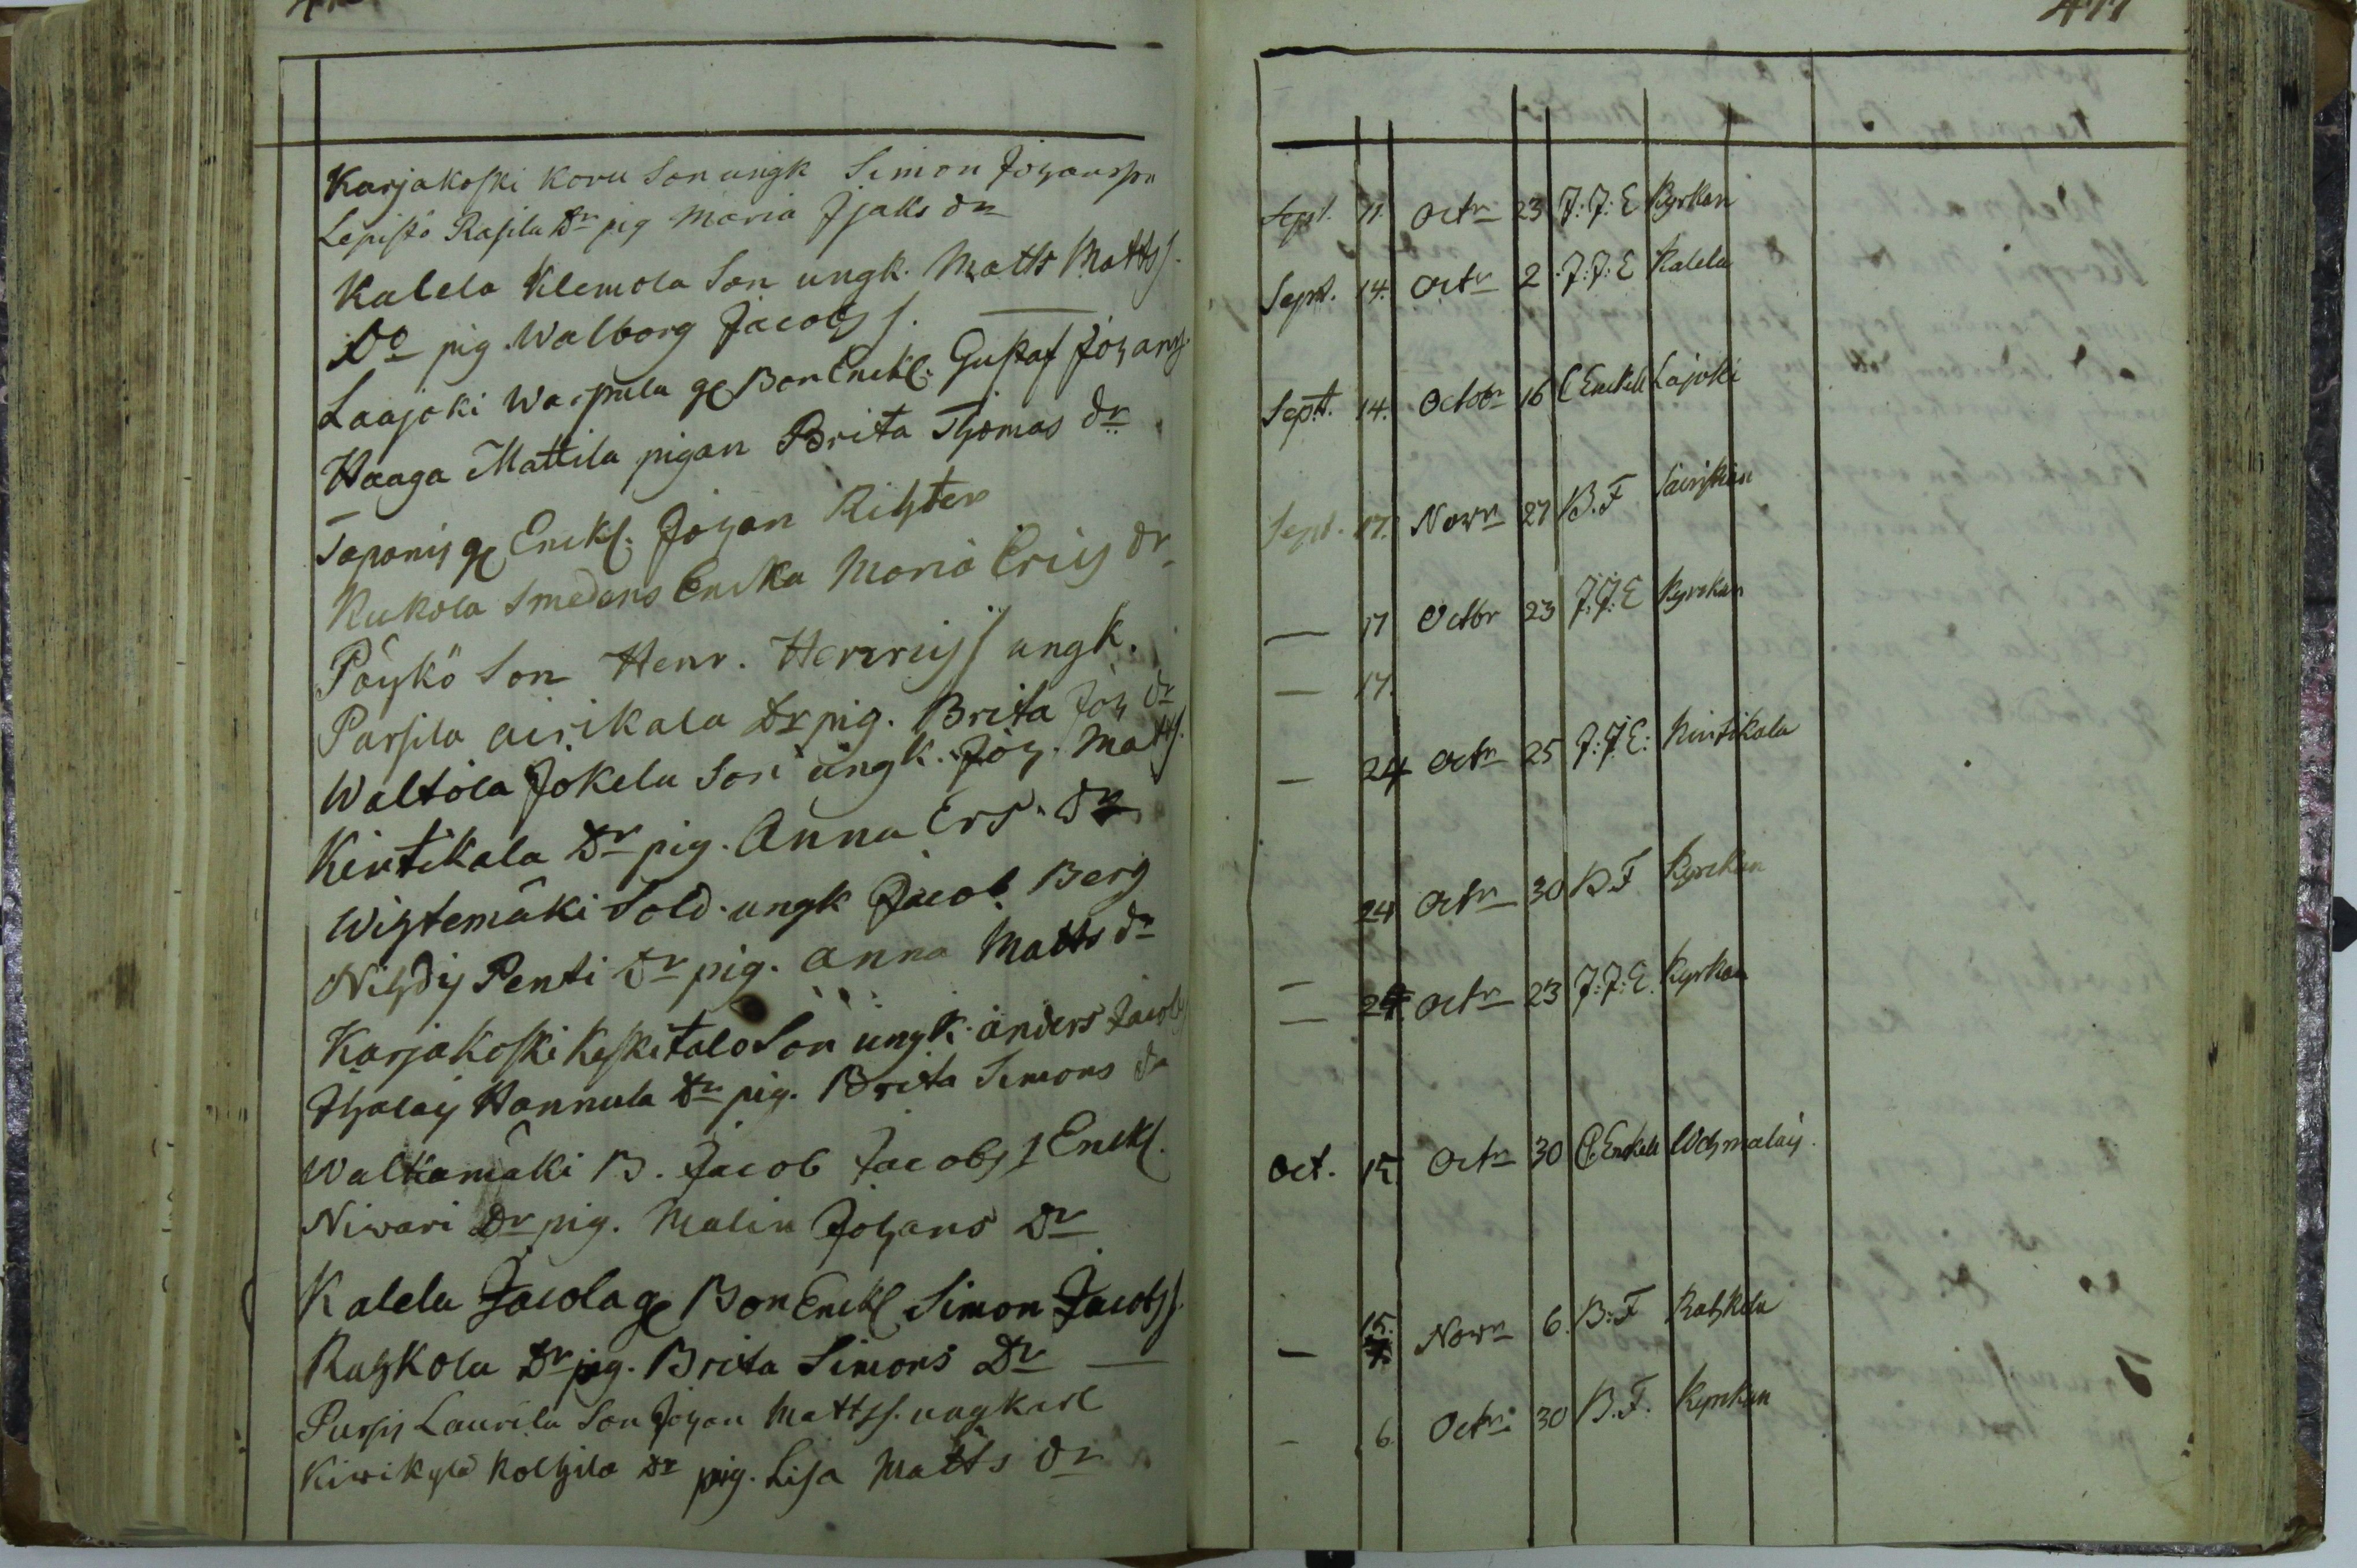 477
Karjakoski Koru Son ungk Simon Johanssn
Lepistö Rasila Dr pig Maria Isaks dr
Kalela Klemola Son ungk. Matts Mattss.
Do pig. Walborg Jacobss.
Laajoki Warpula gl Bon Enckl. Gustaf Johans.
Haaga Mattila pigan Brita Thomas dr
Enckl. Johan Richter
Kukola Smedens Encka Maria Erics dr
Pöykö Son Henr. Henricss ungk.
Parsila airikala Dr pig. Brita Joh dr
Waltola Jokela Son ungk. Joh. Matts.
Kintikala Dr pig. Anna Ers. dr
Wihtemäki Sold. ungk Jacob Berg
Penti Dr pig. anna Matts dr
Karjakoski Keskitalo Son ungk. anders Jacobs
Hannula Dr pig. Brita Simons dr
Walkamäki B. Jacob Jacobss Enckl.
Niwari Dr pig. Malin Johans Dr
Kalela Jacola gl Bon Enckl Simon Jacobss.
Rahkola Dr pig. Brita Simons Dr
Laurila Son Johan Mattss. ungkarl
Kiwikylä Kolhila Dr pig. Lisa Matts dr
Sept. 11. Octr 23 J: J: E Kyrkan
Sept. 14. Octr 2 J: J: E Kalela
Septt. 14. Octobr 16 C Enckell Lajoki
Sept. 17. Novr 27 B. F
— 17 Octbr 23 J: J: E Kyrckan
— 17.
— 24 Octr 25 J: J: E: Kintikala
24 Octr 30 B. F Kyrckan
— 24. Octr 23 J: J: E. Kyrkan
Oct. 15. Octr 30 C. Enckell
— 15. Novr 6. B: F Rahkola
— 6. Octr: 30 B. F. Kyrckan